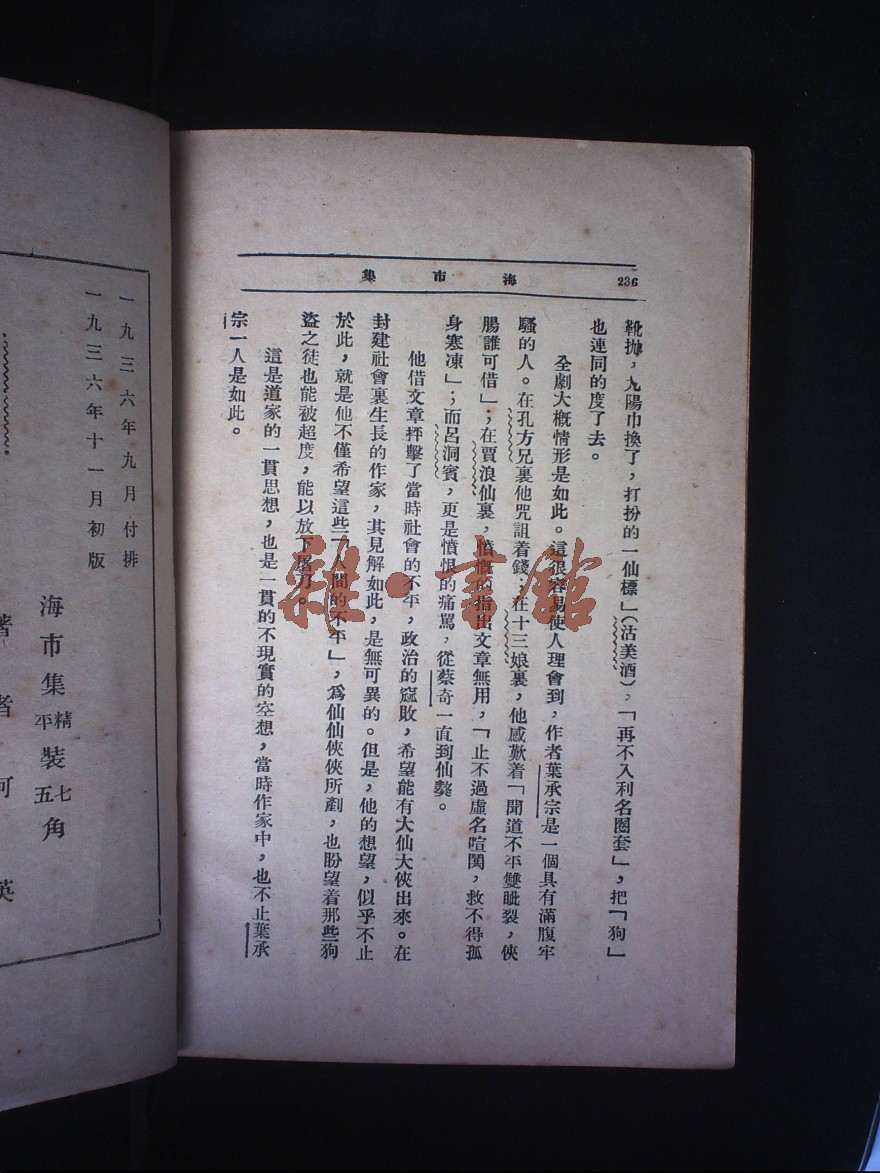 236
海市集
靴拋，九陽巾換了，打扮的一仙標」（沽美酒），「再不入利名圈套」，把「狗」
也連同的度了去。
全劇大概情形是如此。這很容易使人理會到，作者葉承宗是一個具有滿腹牢
騷的人。在孔方兄裏他咒詛着錢；在十三娘裏，他感歎着「聞道不平雙眦裂，俠
腸誰可借」；在賈浪仙裏，憤慨的指出文章無用，「止不過虛名喧鬨，救不得孤
身寒凍」；而呂洞賓，更是憤恨的痛駡，從蔡奇一直到仙獒。
他借文章抨擊了當時社會的不平，政治的窳敗，希望能有大仙大俠出來。在
封建社會裏生長的作家，其見解如此，是無可異的。但是，他的想望，似乎不止
於此，就是他不僅希望這些「人間的不平」，爲仙仙俠俠所剷，也盼望着那些狗
盜之徒也能被超度，能以放下屠刀。
這是道家的一貫思想，也是一貫的不現實的空想，當時作家中，也不止葉承
宗一人是如此。
雜·書館
一九三六年九月付排
一九三六年十一月初版
海市集 精平裝七五角
著者
英